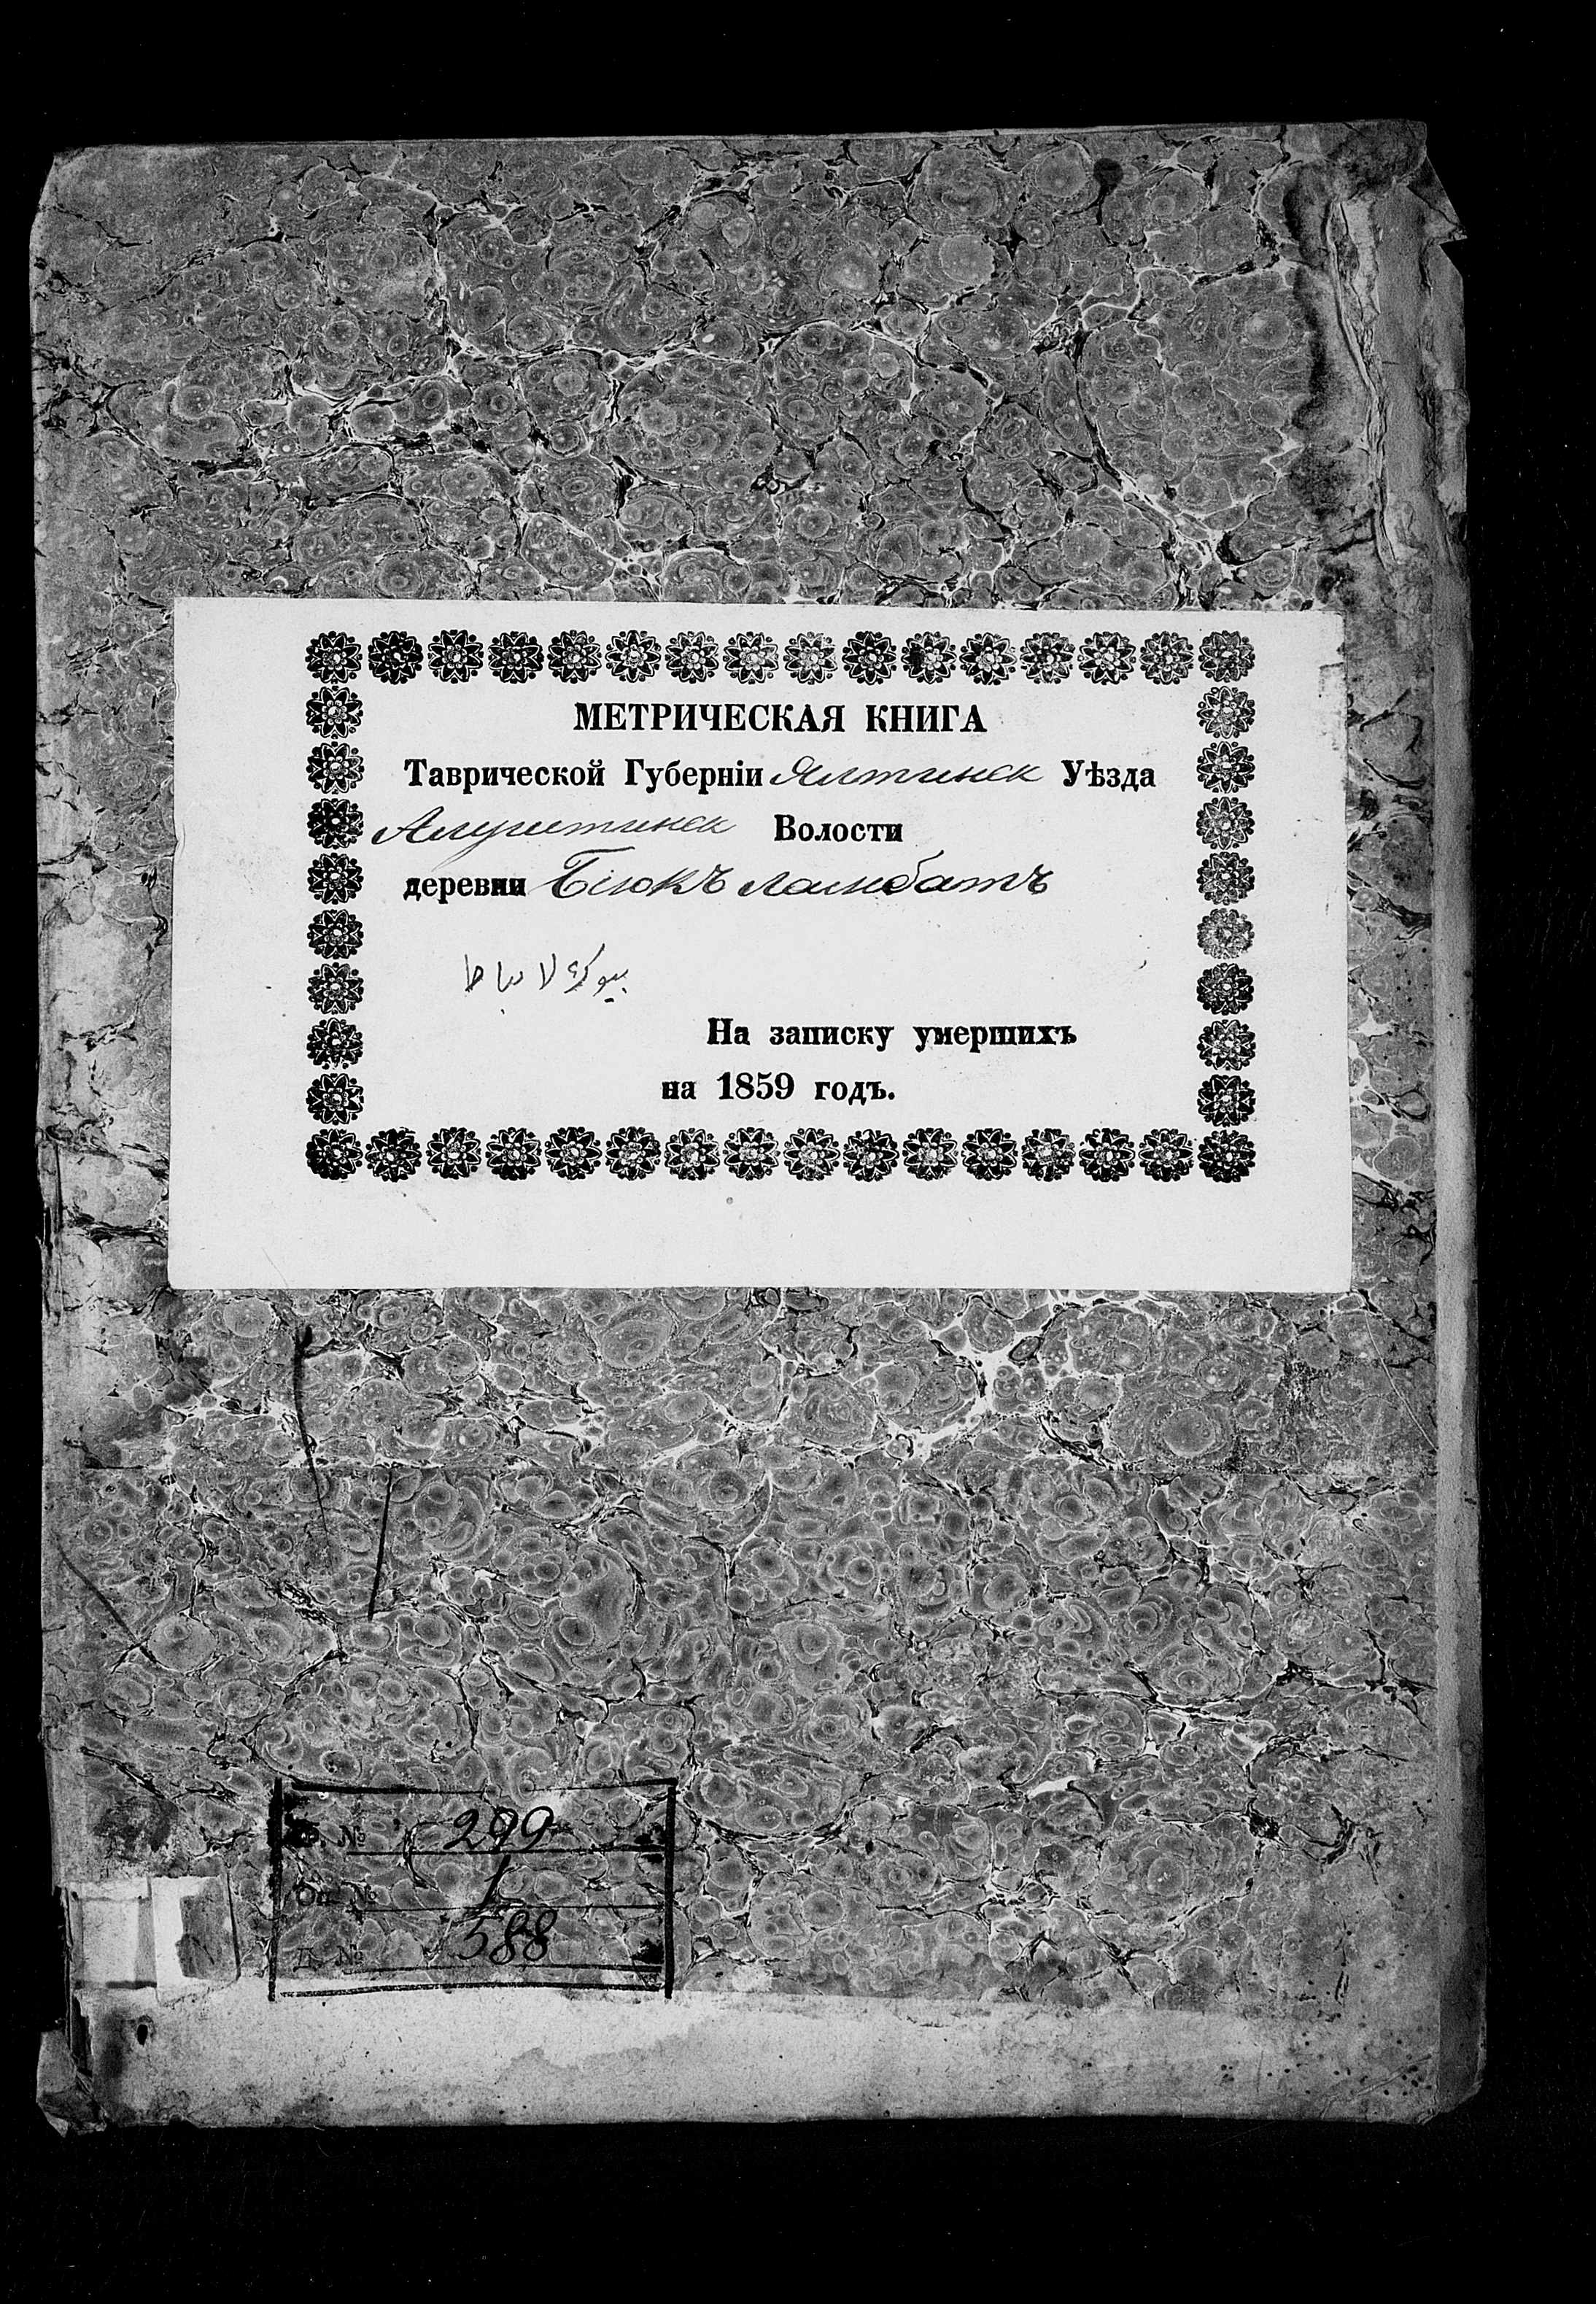 МЕТРИЧЕСКАЯ КНИГА
Таврической Губерніи Ялтинск Уѣзда
Алуштинск Волости
деревни Біюкъ Ламбатъ
بيوك لا
На записку умершихъ
на 1859 годъ.
Ф. № 299
Оп. № 1
Д. № 588